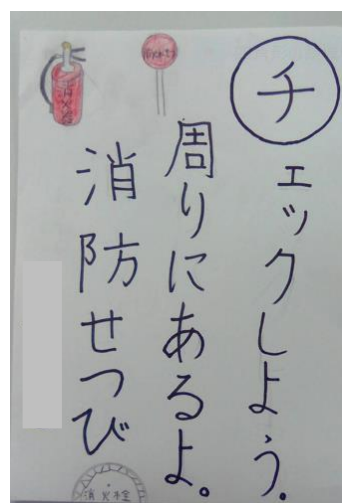 チェックしよう。
周りにあるよ。
消防せつび
消火器
消火栓